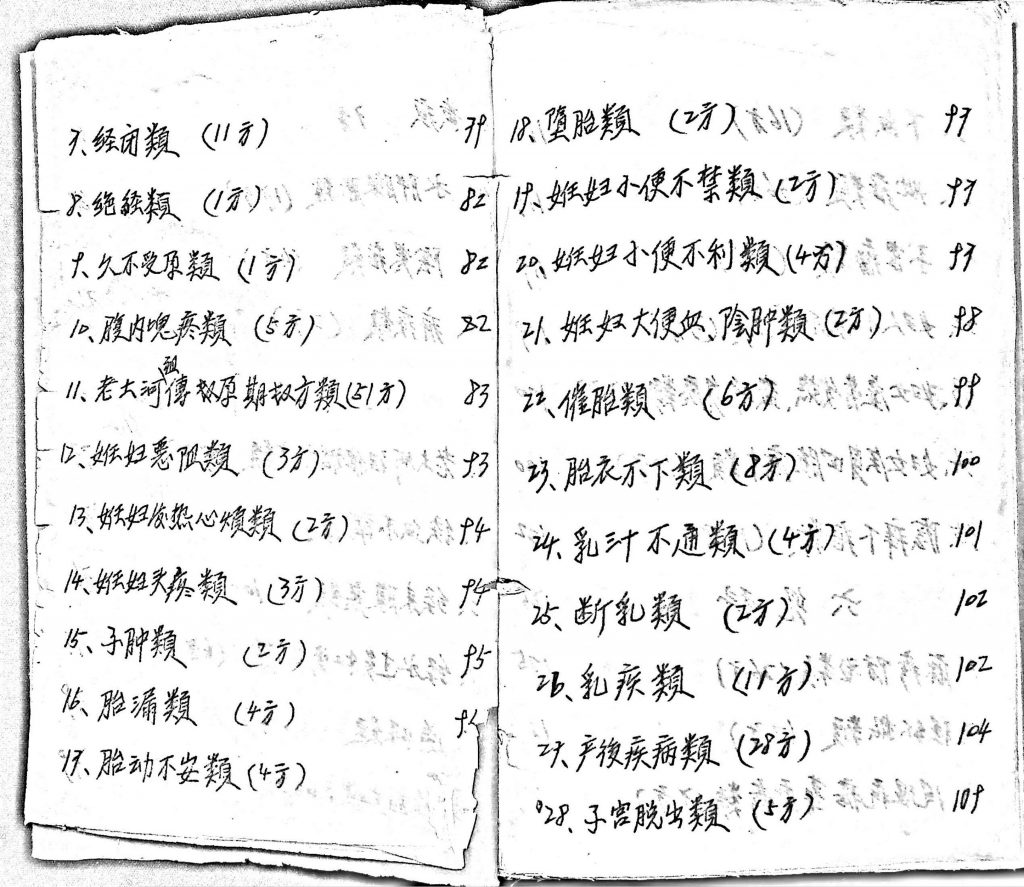 7、经闭類 (11方) 79
8、绝經類 (1方) 82
9、久不受孕類 (1方) 82
10、腹内塊疼類 (5方) 82
11、老大河傳 期 方類 (51方) 83
12、妊妇恶阻類 (3方) 93
13、妊妇发热心煩類 (2方) 94
14、妊妇头疼類 (3方) 94
15、子肿類 (2方) 95
16、胎漏類 (4方)
17、胎动不安類 (4方)
18、墮胎類 (2方) 97
19、妊妇小便不禁類 (2方) 97
20、妊妇小便不利類 (4方) 97
21、妊妇大便血、陰肿類 (2方) 98
22、催胎類 (6方) 99
23、胎衣不下類 (8方) 100
24、乳汁不通類 (4方) 101
25、断乳類 (2方) 102
26、乳疾類 (11方) 102
27、产後疾病類 (28方) 104
28、子宫脱出類 (5方) 109